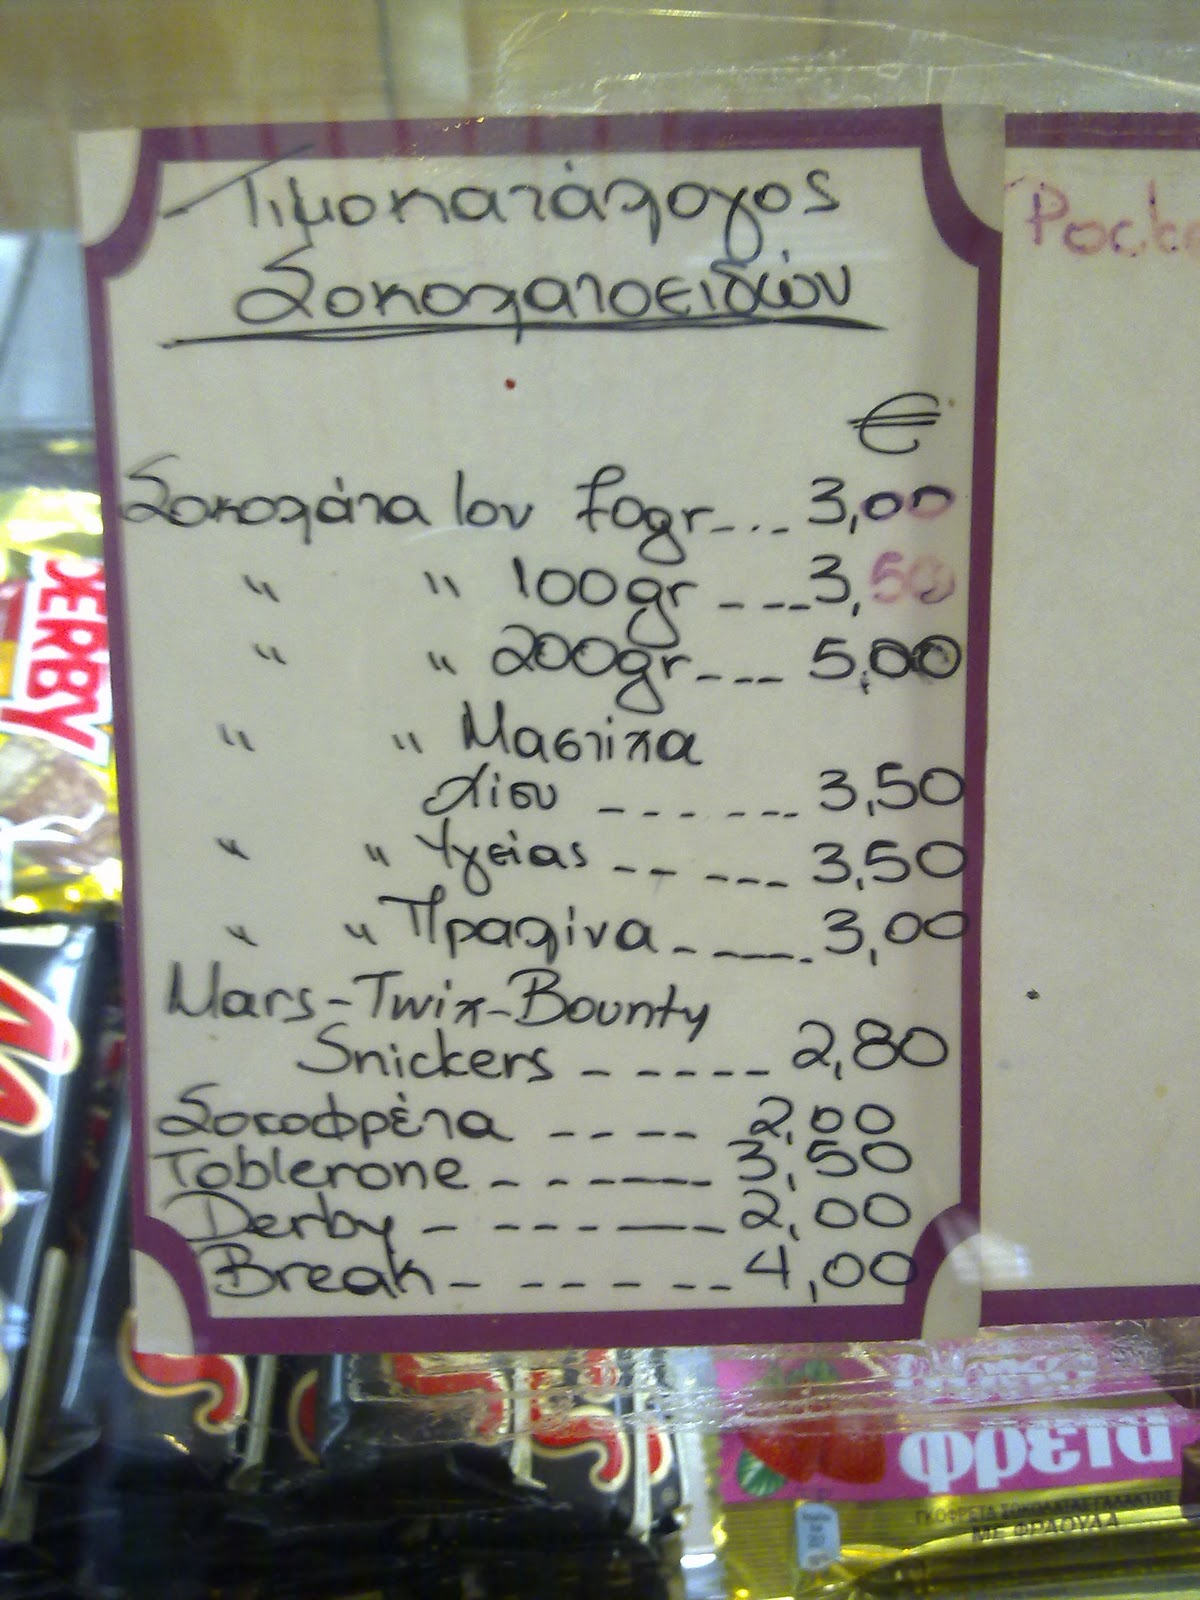 Τιμοκατάλογος
Σοκολατοειδών
€
Σοκολάτα Ιον 70gr-... 3,00
" " 100gr ---- 3,50
" " 200gr --- 5,00
" " Μαστίχα
Χίου ------ 3,50
" " Υγείας ----- 3,50
" " Πραλίνα ----. 3,00
Mars-Twix-Bounty
Snickers ----- 2,80
Σοκοφρέτα ---- 2,00
Toblerone ------ 3,50
Derby ------ 2,00
Break ------ 4,00
DERBY
φρέτα
ΓΚΟΦΡΕΤΑ ΣΟΚΟΛΑΤΑΣ ΓΑΛΑΚΤΟΣ
ΜΕ ΦΡΑΟΥΛΑ